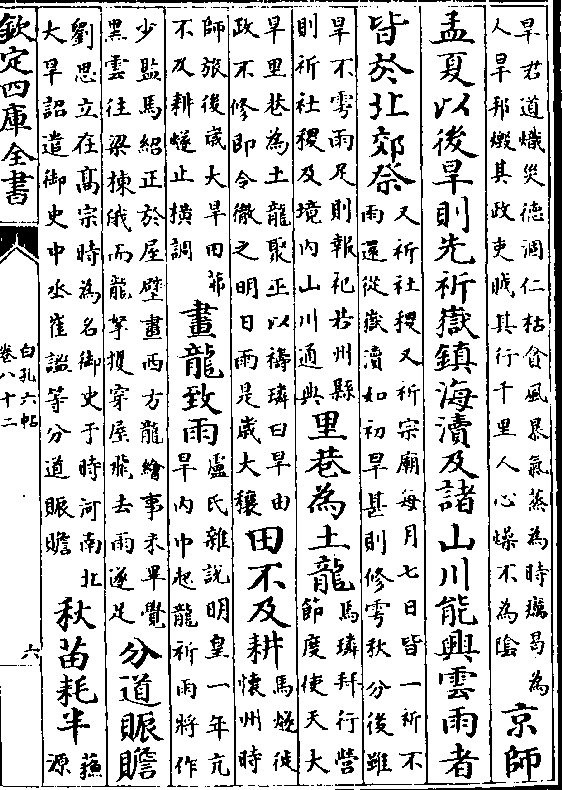 旱君道熾災德凋仁枯貪風暴氣蒸為時癘曷為
人旱邦煅其政吏賊其行千里人心燥不為陰
京師
孟夏以後旱則先祈嶽鎮海瀆及諸山川能興雲雨者
皆於北郊祭
又祈社稷又祈宗廟每月七日皆一祈不
雨還從嶽瀆如初旱甚則修雩秋分後雖
旱不雩雨足則報祀若州縣
則祈社稷及境內山川通典
里巷為土龍
馬璘拜行營
節度使天大
旱里巷為土龍聚巫以禱璘曰旱由
政不修即命徹之明日雨是歲大穰
田不及耕
馬燧徙
懷州時
師旅後歲大旱田茀
不及耕燧止橫調
畫龍致雨
盧氏雜說明皇一年亢
旱內中起龍祈雨將作
少監馬紹正於屋壁畫西方龍繪事未畢覺
黑雲往梁棟俄而龍拏攫穿屋飛去雨遂足
分道賑贍
劉思立在高宗時為名御史于時河南北
大旱詔遣御史中丞崔謐等分道賑贍
秋苗耗半
蘇
源
欽定四庫全書
白孔六帖
卷八十二
六